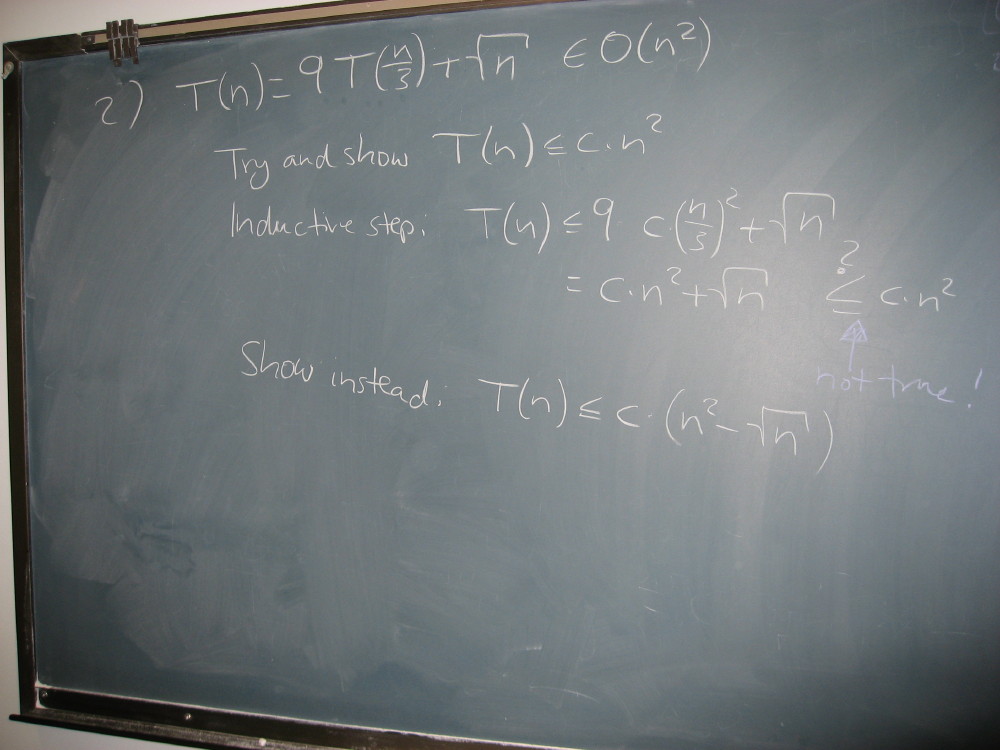 2) T(n) = 9 T(n/3) + √n ∈ O(n²)
Try and show T(n) ≤ c·n²
Inductive step: T(n) ≤ 9 c·(n/3)² + √n
= c·n² + √n ≤ c·n²
?
not true!
Show instead: T(n) ≤ c·(n² - √n)